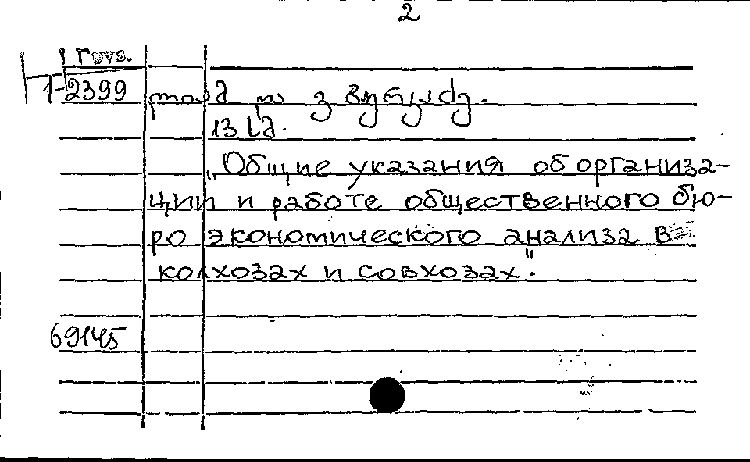 2
1-2399
„Общие указания об организа-
ции и работе общественного бю-
ро экономического анализа в
колхозах и совхозах".
69145